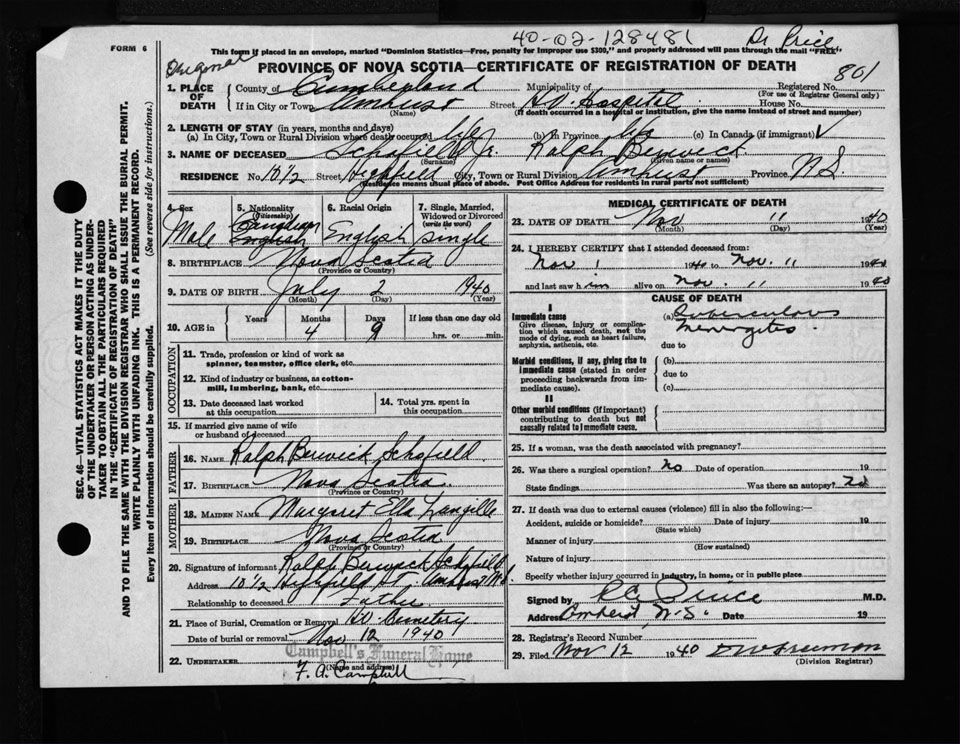 40-02-128481 Dr Price
FORM 6
This form if placed in an envelope, marked "Dominion Statistics—Free, penalty for improper use $300," and properly addressed will pass through the mail "FREE"
Original
PROVINCE OF NOVA SCOTIA—CERTIFICATE OF REGISTRATION OF DEATH
801
1. PLACE OF DEATH
County of Cumberland Municipality of Registered No.
(For use of Registrar General only)
If in City or Town Amherst Street H.V. Hospital House No.
(Name) (If death occurred in a hospital or institution, give the name instead of street and number)
2. LENGTH OF STAY (in years, months and days)
(a) In City, Town or Rural Division where death occurred life (b) In Province life (c) In Canada (if immigrant)
3. NAME OF DECEASED Schofield Jr. Ralph Berwick
(Surname) (Given name or names)
RESIDENCE No. 10½ Street Highfield City, Town or Rural Division Amherst Province N.S.
(Residence means usual place of abode. Post Office Address for residents in rural parts not sufficient)
4. Sex 5. Nationality (Citizenship) 6. Racial Origin 7. Single, Married, Widowed or Divorced (write the word)
Male Canadian English English Single
8. BIRTHPLACE Nova Scotia
(Province or Country)
9. DATE OF BIRTH July 2 1940
(Month) (Day) (Year)
10. AGE in Years Months Days If less than one day old
4 9 hrs. or min.
OCCUPATION
11. Trade, profession or kind of work as spinner, teamster, office clerk, etc.
12. Kind of industry or business, as cotton-mill, lumbering, bank, etc.
13. Date deceased last worked at this occupation
14. Total yrs. spent in this occupation
15. If married give name of wife or husband of deceased
FATHER
16. NAME Ralph Berwick Schofield
17. BIRTHPLACE Nova Scotia
(Province or Country)
MOTHER
18. MAIDEN NAME Margaret Ella Langille
19. BIRTHPLACE Nova Scotia
(Province or Country)
20. Signature of informant Ralph Berwick Schofield
Address 10½ Highfield St. Amherst N.S.
Relationship to deceased Father
21. Place of Burial, Cremation or Removal H.V. Cemetery
Date of burial or removal Nov 12 1940
Campbell's Funeral Home
22. UNDERTAKER F. A. Campbell
(Name and address)
MEDICAL CERTIFICATE OF DEATH
23. DATE OF DEATH Nov 11 1940
(Month) (Day) (Year)
24. I HEREBY CERTIFY that I attended deceased from:
Nov 1 1940 to Nov. 11 1940
and last saw him alive on Nov. 11 1940
CAUSE OF DEATH
I
Immediate cause
Give disease, injury or complication which caused death, not the mode of dying, such as heart failure, asphyxia, asthenia, etc.
(a) Tuberculous Meningitis
due to
Morbid conditions, if any, giving rise to immediate cause (stated in order proceeding backwards from immediate cause).
(b)
due to
(c)
II
Other morbid conditions (if important) contributing to death but not causally related to immediate cause.
25. If a woman, was the death associated with pregnancy?
26. Was there a surgical operation? No Date of operation 19
State findings Was there an autopsy? No
27. If death was due to external causes (violence) fill in also the following:—
Accident, suicide or homicide? Date of injury 19
(State which)
Manner of injury
(How sustained)
Nature of injury
Specify whether injury occurred in industry, in home, or in public place
Signed by M.D.
Address Amherst, N.S. Date 19
28. Registrar's Record Number
29. Filed Nov 12 1940
(Division Registrar)
SEC. 46—VITAL STATISTICS ACT MAKES IT THE DUTY
OF THE UNDERTAKER OR PERSON ACTING AS UNDERTAKER TO OBTAIN ALL THE PARTICULARS REQUIRED
IN THE "CERTIFICATE OF REGISTRATION OF DEATH"
AND TO FILE THE SAME WITH THE DIVISION REGISTRAR WHO SHALL ISSUE THE BURIAL PERMIT.
WRITE PLAINLY WITH UNFADING INK. THIS IS A PERMANENT RECORD.
Every item of information should be carefully supplied. (See reverse side for instructions.)